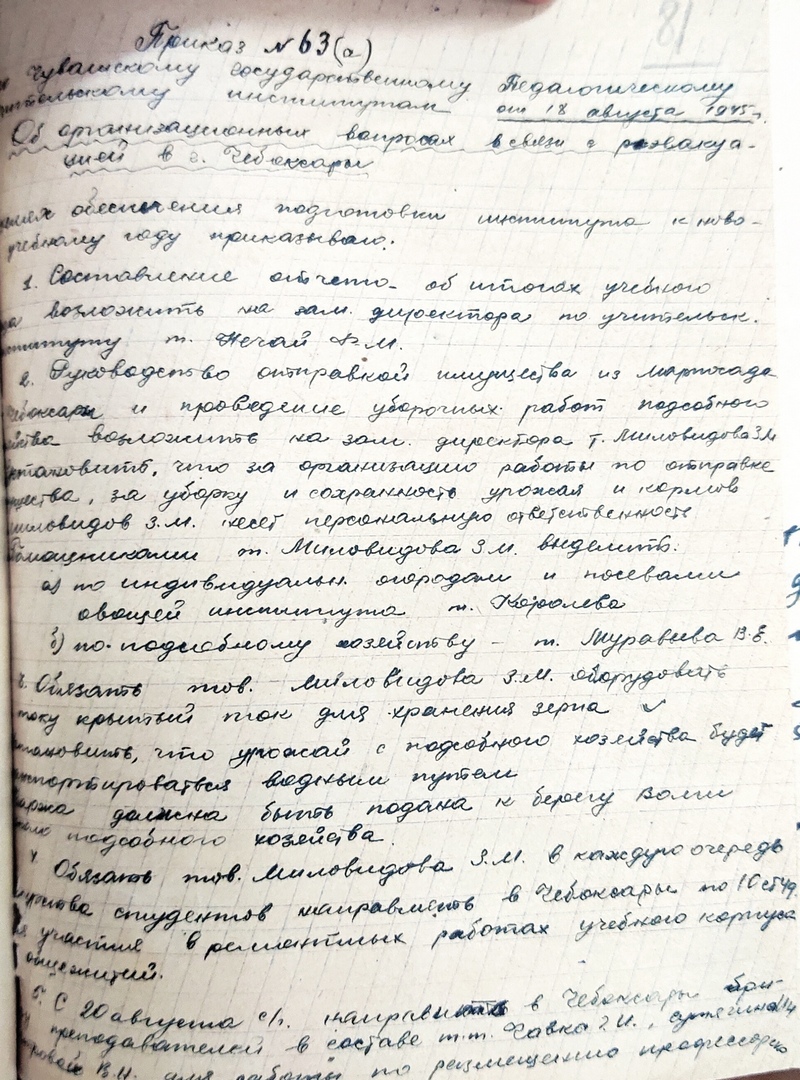 81
Приказ № 63(а)
Чувашскому государственному Педагогическому
учительскому институтам от 18 августа 1945г.
Об организационных вопросах в связи с реэвакуа-
цией в г. Чебоксары
целях обеспечения подготовки института к ново-
учебному году приказываю:
1. Составление отчета об итогах учебного
возложить на зам. директора по учительск.
институту т. Нечай В.М.
2. Руководство отправкой имущества из Мартосада
Чебоксары и проведение уборочных работ подсобного
возложить на зам. директора т. Миловидова З.М.
установить, что за организацию работы по отправке
имущества, за уборку и сохранность урожая и кормов
Миловидов З.М. несет персональную ответственность
Помощниками т. Миловидова З.М. выделить:
а) по индивидуальн. огородам и посевами
овощей института т. Королева
б) по подсобному хозяйству – т. Муравьева В.Е.
3. Обязать тов. Миловидова З.М. оборудовать
току крытый ток для хранения зерна
установить, что урожай с подсобного хозяйства будет
транспортироваться водным путем
баржа должна быть подана к берегу Волги
подсобного хозяйства.
4. Обязать тов. Миловидова З.М. в каждую очередь
имущества студентов направлять в Чебоксары по 10 ст.
участия в ремонтных работах учебного корпуса
общежитий.
5. С 20 августа с/г. направить в Чебоксары бри-
преподавателей в составе т.т. Чавка
В.И. для работы по размещению профессорско